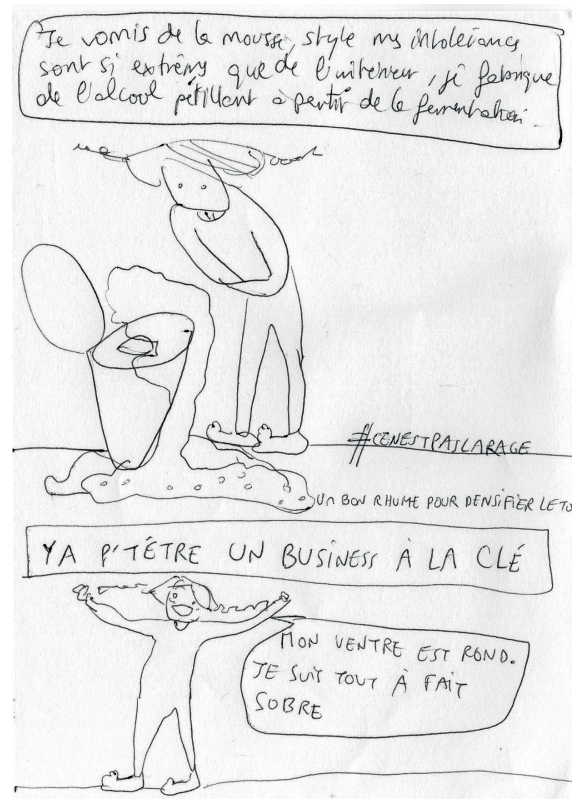 Je vomis de la mousse, style mes intolérances
sont si extrêmes que de l'intérieur, je fabrique
de l'alcool pétillant à partir de la fermentation.
#CENESTPASLARAGE
UN BON RHUME POUR DENSIFIER LE TO
YA P'TÉTRE UN BUSINESS À LA CLÉ
MON VENTRE EST ROND.
JE SUIS TOUT À FAIT
SOBRE